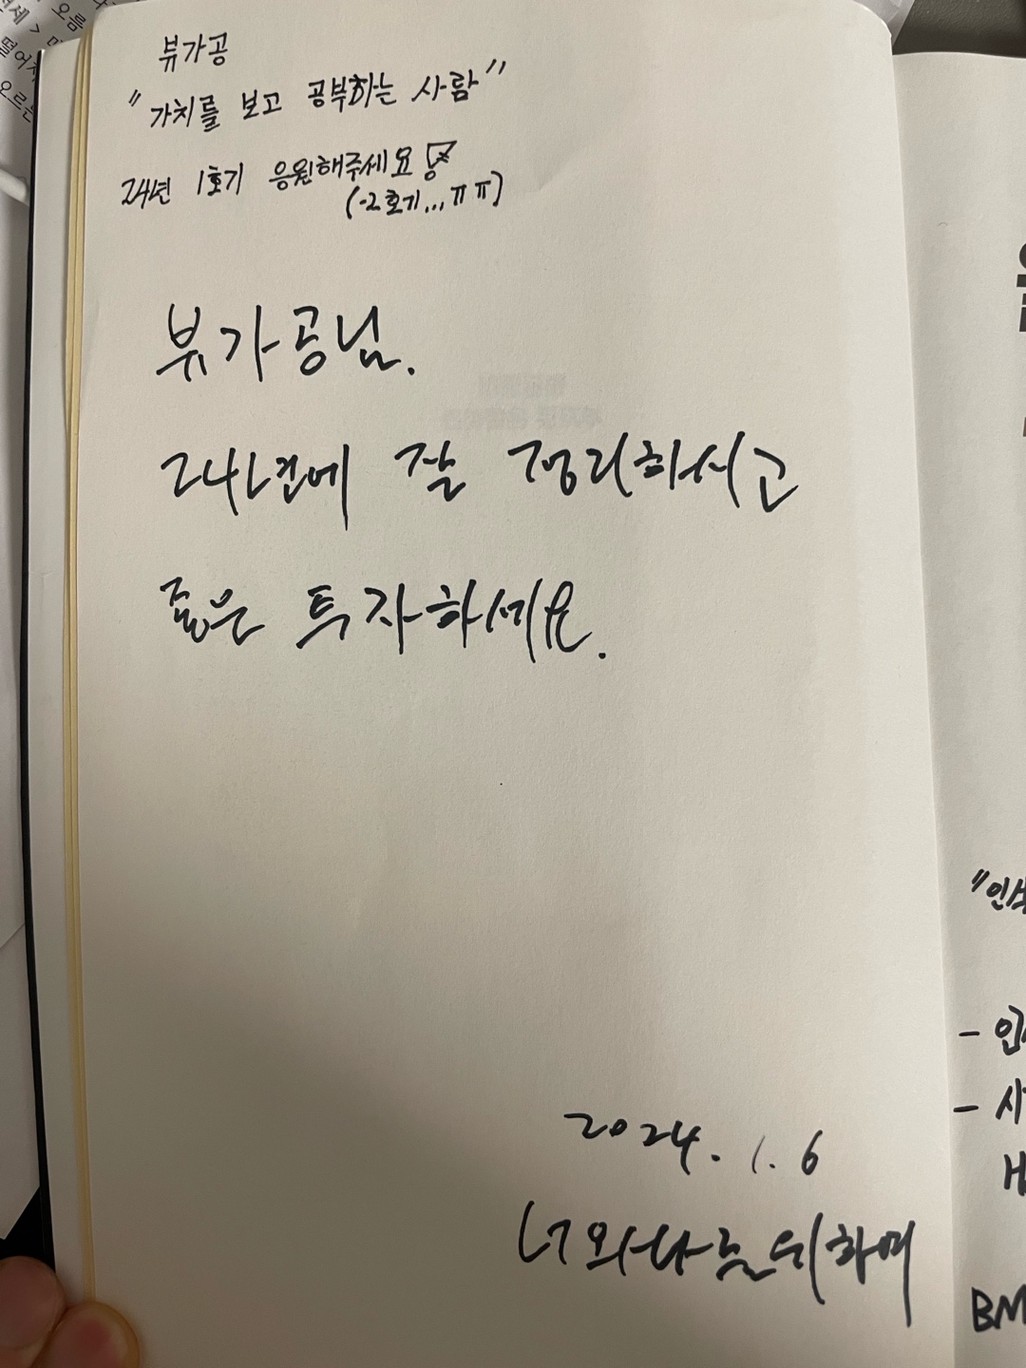 뷰가공
"가치를 보고 공부하는 사람"
24년 1호기 응원해주세요
(-2호기...ㅠㅠ)
뷰가공님.
24년에 잘 정리하시고
좋은 투자하세요.
2024. 1. 6
너와나를위하여
- 인
- 사
BM